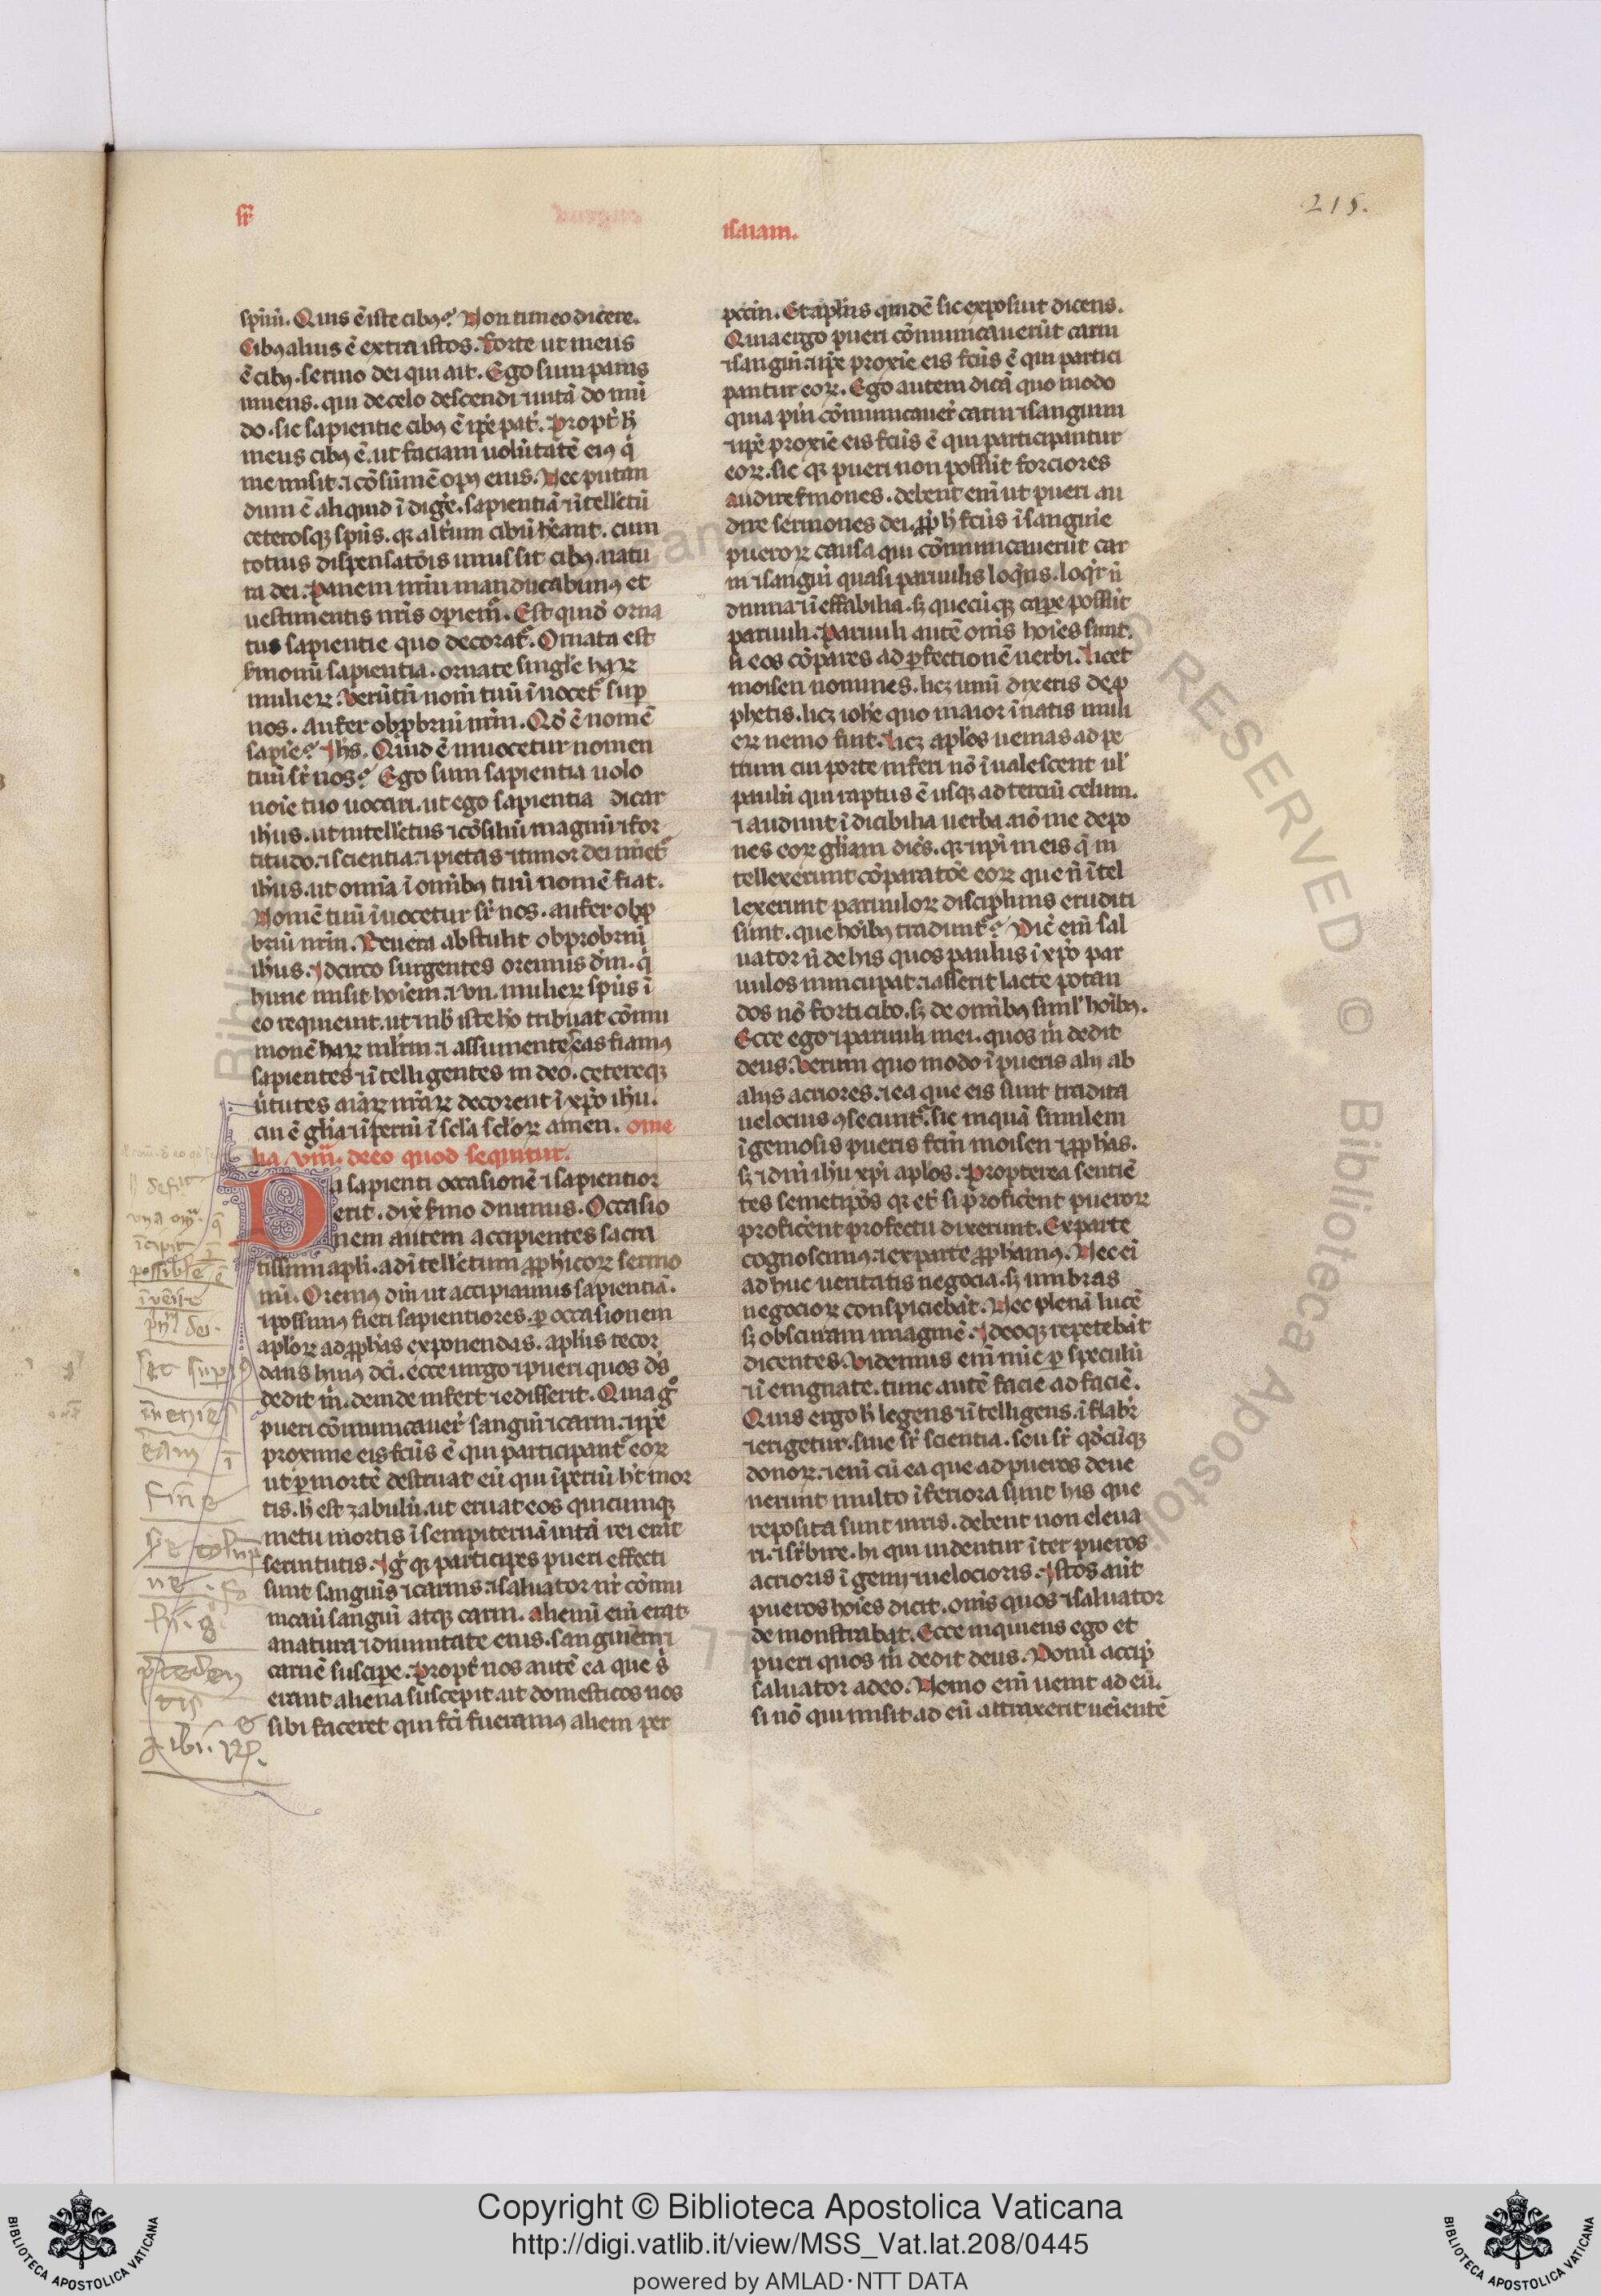 215.
sr̄
isaiam.
sp̄inī. Quis ē iste cibꝰ? Non timeo dicere.
Cibꝰ alius ē extra istos. Forte ut meus
ē cibꝰ. sermo dei qui ait. Ego sum panis
uiuens. qui de celo descendi ⁊ uitā do mū
do. sic sapientie cibꝰ ē ip̄e pat̄. Propt̄ h̄
meus cibꝰ ē. ut faciam uolūtatē eiꝰ q̄
me misit. ⁊ cōsūmē opꝰ eius. Nec putan
dum ē aliquid īdiḡe. sapientiā ⁊ ītellectū
ceterosqꝫ sp̄us. qꝛ alt̄um cibū h̄eant. cum
totius dispensatōis unus sit cibꝰ. natu
ra dei. Panem nr̄m manducabimꝰ et
uestimentis nr̄is operiem̄. Est quidē orna
tus sapientie quo decorat̄. Ornata est
s̄monū sapientia. ornate singl'e haꝝ
mulieꝝ. Verūtn̄ nom̄ tuū īuocet̄ sup
nos. aufer obꝓbriū nr̄m. Qd̄ ē nomē
sapīe? Ih̄s. Quid ē inuocetur nomen
tuū sr̄ nos? Ego sum sapientia uolo
noīe tuo uocari. ut ego sapientia dicar
ih̄us. ut intell'ctus ⁊ cōsiliū magnū ⁊ for
titudo. ⁊ scientia. ⁊ pietas ⁊ timor dei nīet̄
ih̄us. ut omīa ī omībꝰ tuū nomē fiat.
Nomē tuū īuocetur sr̄ nos. aufer obꝓ
briū nr̄m. Reuera abstulit obprobriū
ih̄us. Idcirco surgentes oremus dm̄. q̄
hunc misit hoīem. ⁊ vii. mulieꝝ sp̄us ī
eo requieuit. ut nb̄ iste h̄o tribuat cōmu
monē haꝝ ml'rm. ⁊ assumentes eas fiamꝰ
sapientes ⁊ ītelligentes in deo. cetereqꝫ
ūtutes aīaꝝ nr̄aꝝ decorent ī xp̄o ih̄u.
cui ē gl'ia ⁊ īperiū ī scl'a scl'oꝝ amen. ome
lia. vīīī. de eo quod sequitur.
Da sapienti occasionē ⁊ sapientior
erit. dix̄ s̄mo diuinus. Occasio
nem autem accipientes sacra
tissimi apl'i. ad ītell'ctum ꝓph̄icoꝝ sermo
nū. Oremꝰ dm̄ ut accipiamus sapientiā.
⁊ possimꝰ fieri sapientiores. ꝑ occasionem
apl'oꝝ ad ꝓph̄as exponendas. apl'us recor
dans huiꝰ dc̄i. ecce uirgo ⁊ pueri quos d̄s
dedit m̄. deinde infert ⁊ edisserit. Quia ḡ
pueri cōmunicauer̄ sanguī ⁊ carni. ⁊ ip̄e
proxime eis fc̄us ē qui participant̄ eoꝝ
ut ꝑ mortē destruat eū qui īperiū h̄t mor
tis. h̄ est zabulū. ut eruat eos quicumqꝫ
metu mortis ī sempiternā uitā rei erāt
seruitutis. Iḡ qꝛ participes pueri effecti
sunt sanguīs ⁊ carnis. ⁊ saluator nr̄ cōmu
nicauī sanguī atqꝫ carni. alienū em̄ erat
a natura ⁊ diuinitate eius. sanguīem ⁊
carnē suscipe. Propt̄ nos autē ea que s̄
erant aliena suscepit. ut domesticos nos
sibi faceret qui fc̄i fueramꝰ alieni per
pccm̄. Et apl'us quidē sic exposuit dicens.
Quia ergo pueri cōmunicauerūt carni
⁊ sanguī. ⁊ ip̄e proxīe eis fc̄us ē qui partici
pantur eoꝝ. Ego autem dicā quo modo
quia pūi cōmunicauer̄ carni ⁊ sanguini
⁊ ip̄e proxīe eis fc̄us ē qui participantur
eoꝝ. sic qꝛ pueri non possūt forciores
audire s̄mones. debent em̄ ut pueri au
dire sermones dei. ꝓp̄ h̄ fc̄us ī sanguīe
pueroꝝ causa qui cōmunicauerūt car
ni ⁊ sanguī quasi paruulis loq̄ns. loq̄r n̄
diuina ⁊ īeffabilia. sꝫ quecūqꝫ capē possūt
paruuli. Paruuli autē om̄s hoīes sunt.
si eos cōpares ad ꝑfectionē uerbi. licet
moisen nomines. licꝫ unū dixeris de ꝓ
phetis. licꝫ ioh̄e quo maior ī natis muli
eꝝ nemo fuit. licꝫ apl'os uenias ad pe
trum cui porte inferi nō īualescent ul'
paulū qui raptus ē usqꝫ ad terciū celum.
⁊ audiuit īdicibilia uerba. nō me depo
nes eoꝝ gl'iam dic̄s. qꝛ ⁊ ip̄i in eis q̄ in
tellexerunt cōparatōe eoꝝ que n̄ ītel
lexerunt paruuloꝝ disciplinis eruditi
sūnt. que hoībꝰ tradunt̄? Dic̄ em̄ sal
uator n̄ de his quos paulus ī xp̄o par
uulos nuncupat. ⁊ asserit lacte potan
dos nō forti cibo. sꝫ de omībꝰ simul' hoībꝰ.
Ecce ego ⁊ paruuli mei. quos m̄ dedit
deus. Verum quo modo ī pueris alii ab
aliis acriores. ⁊ ea que eis sunt tradita
uelocius ꝯsecunt̄. sic inquā similem
īgeniosis pueris fc̄m moisen ⁊ ꝓph̄as.
sꝫ ⁊ dn̄i ih̄u xp̄i apl'os. Propterea sentiē
tes semetip̄os qꝛ et̄ si proficēnt pueroꝝ
proficēnt profectu dixerunt. Ex parte
cognoscimꝰ. ⁊ ex parte ꝓph̄amꝰ. Nec ei
adhuc ueritatis negocia. sꝫ umbras
negocioꝝ conspiciebāt. Nec plenā lucē
sꝫ obscuram imaginē. Ideoqꝫ repetebāt
dicentes. Videmus em̄ nūc ꝑ speculū
⁊ ī enignate. tunc autē facie ad faciē.
Quis ergo h̄ legens ⁊ ītelligens. īflabr̄
⁊ erigetur. siue sr̄ scientia. seu sr̄ qd̄cūqꝫ
donoꝝ. ⁊ enī cū ea que ad pueros deue
nerunt multo īferiora sunt his que
reposita sunt uiris. debent non eleua
ri. ⁊ sr̄bire. hi qui uidentur īter pueros
acrioris īgenij ⁊ uelocioris. Istos aūt
pueros hoīes dicit. om̄s quos ⁊ saluator
demonstrabat. Ecce inquiens ego et
pueri quos m̄ dedit deus. Donū accip̄
saluator a deo. Nemo em̄ uenit ad eū.
si nō qui misit. ad eū attraxerit ueīentē
Copyright © Biblioteca Apostolica Vaticana
http://digi.vatlib.it/view/MSS_Vat.lat.208/0445
powered by AMLAD·NTT DATA
BIBLIOTECA APOSTOLICA VATICANA
BIBLIOTECA APOSTOLICA VATICANA